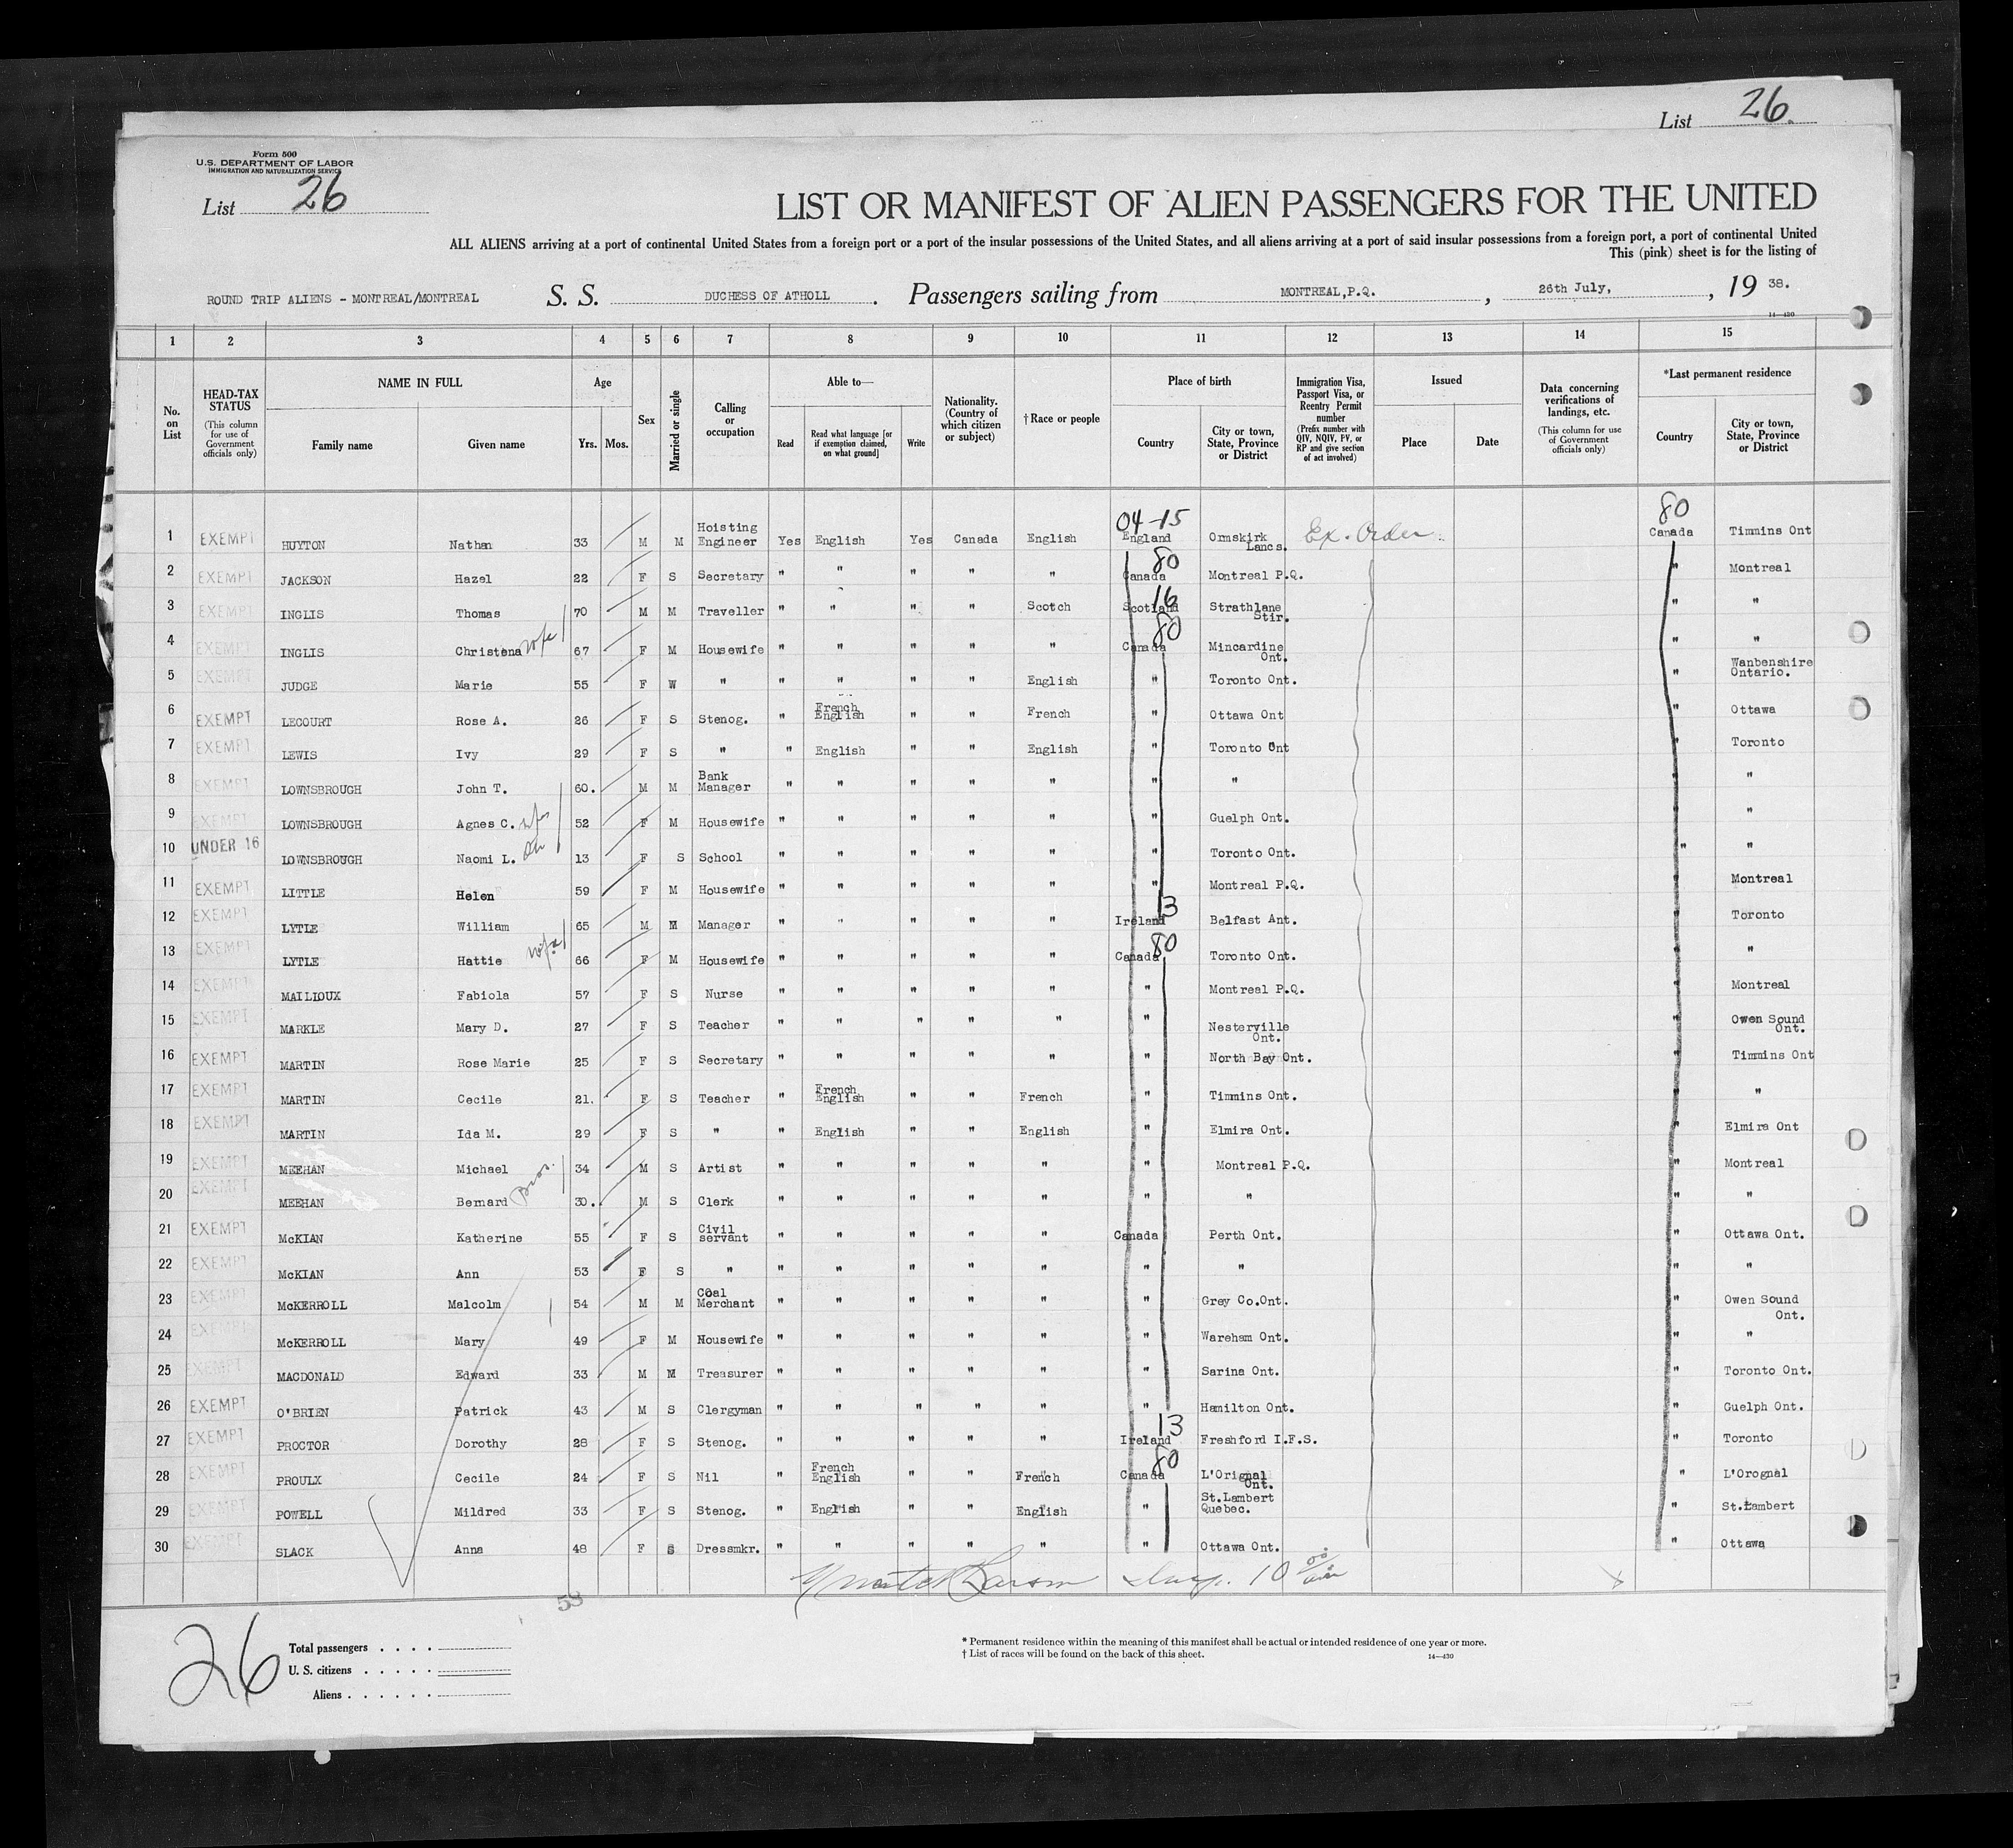 List 26.
Form 500
U.S. DEPARTMENT OF LABOR
IMMIGRATION AND NATURALIZATION SERVICE
List 26
LIST OR MANIFEST OF ALIEN PASSENGERS FOR THE UNITED
ALL ALIENS arriving at a port of continental United States from a foreign port or a port of the insular possessions of the United States, and all aliens arriving at a port of said insular possessions from a foreign port, a port of continental United
This (pink) sheet is for the listing of
ROUND TRIP ALIENS - MONTREAL/MONTREAL S. S. DUCHESS OF ATHOLL . Passengers sailing from MONTREAL,P.Q. , 26th July, , 19 38.
14—430
1 2 3 4 5 6 7 8 9 10 11 12 13 14 15
No. on List
HEAD-TAX STATUS (This column for use of Government officials only)
NAME IN FULL Family name Given name
Age Yrs. Mos.
Sex
Married or single
Calling or occupation
Able to— Read Read what language [or if exemption claimed, on what ground] Write
Nationality. (Country of which citizen or subject)
†Race or people
Place of birth Country City or town, State, Province or District
Immigration Visa, Passport Visa, or Reentry Permit number (Prefix number with QIV, NQIV, PV, or RP and give section of act involved)
Issued Place Date
Data concerning verifications of landings, etc. (This column for use of Government officials only)
*Last permanent residence Country City or town, State, Province or District
04-15 80
1 EXEMPT HUYTON Nathan 33 M M Hoisting Engineer Yes English Yes Canada English England Ormskirk Lancs. Ex. Order Canada Timmins Ont
2 EXEMPT JACKSON Hazel 22 F S Secretary " " " " " Canada 80 Montreal P.Q. " Montreal
3 EXEMPT INGLIS Thomas 70 M M Traveller " " " " Scotch Scotland 16 Strathlane Stir. " "
4 EXEMPT INGLIS Christena wife 67 F M Housewife " " " " " Canada 80 Mincardine Ont. " "
5 EXEMPT JUDGE Marie 55 F W " " " " " English " Toronto Ont. " Wanbenshire Ontario.
6 EXEMPT LECOURT Rose A. 26 F S Stenog. " French English " " French " Ottawa Ont " Ottawa
7 EXEMPT LEWIS Ivy 29 F S " " English " " English " Toronto Ont " Toronto
8 EXEMPT LOWNSBROUGH John T. 60. M M Bank Manager " " " " " " " " "
9 EXEMPT LOWNSBROUGH Agnes C. wife 52 F M Housewife " " " " " " Guelph Ont. "
10 UNDER 16 LOWNSBROUGH Naomi L. 13 F S School " " " " " " Toronto Ont. " "
11 EXEMPT LITTLE Helen 59 F M Housewife " " " " " " Montreal P.Q. " Montreal
12 EXEMPT LYTLE William 65 M M Manager " " " " " Ireland 13 Belfast Ant. " Toronto
13 EXEMPT LYTLE Hattie wife 66 F M Housewife " " " " " Canada 80 Toronto Ont. " "
14 EXEMPT MAILIOUX Fabiola 57 F S Nurse " " " " " " Montreal P.Q. " Montreal
15 EXEMPT MARKLE Mary D. 27 F S Teacher " " " " " " Nesterville Ont. " Owen Sound Ont.
16 EXEMPT MARTIN Rose Marie 25 F S Secretary " " " " " " North Bay Ont. " Timmins Ont
17 EXEMPT MARTIN Cecile 21. F S Teacher " French English " " French " Timmins Ont. " "
18 EXEMPT MARTIN Ida M. 29 F S " " English " " English " Elmira Ont. " Elmira Ont
19 EXEMPT MEEHAN Michael 34 M S Artist " " " " " " Montreal P.Q. " Montreal
20 EXEMPT MEEHAN Bernard Bros. 30. M S Clerk " " " " " " " " "
21 EXEMPT McKIAN Katherine 55 F S Civil servant " " " " " Canada Perth Ont. " Ottawa Ont.
22 EXEMPT McKIAN Ann 53 F S " " " " " " " " " "
23 EXEMPT McKERROLL Malcolm 54 M M Coal Merchant " " " " " " Grey Co.Ont. " Owen Sound Ont.
24 EXEMPT McKERROLL Mary 49 F M Housewife " " " " " " Wareham Ont. " "
25 EXEMPT MACDONALD Edward 33 M M Treasurer " " " " " " Sarina Ont. " Toronto Ont.
26 EXEMPT O'BRIEN Patrick 43 M S Clergyman " " " " " " Hamilton Ont. " Guelph Ont.
27 EXEMPT PROCTOR Dorothy 28 F S Stenog. " " " " " Ireland 13 Freshford I.F.S. " Toronto
28 EXEMPT PROULX Cecile 24 F S Nil " French English " " French Canada 80 L'Orignal Ont. " L'Orognal
29 EXEMPT POWELL Mildred 33 F S Stenog. " English " " English " St.Lambert Quebec. " St.Lambert
30 EXEMPT SLACK Anna 48 F S Dressmkr. " " " " " " Ottawa Ont. " Ottawa
Insp. 10
53
26
Total passengers . . . .
U. S. citizens . . . . .
Aliens . . . . . .
* Permanent residence within the meaning of this manifest shall be actual or intended residence of one year or more.
† List of races will be found on the back of this sheet. 14—430